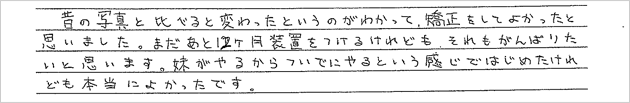 昔の写真と比べると変わったというのがわかって、矯正をしてよかったと
思いました。まだあと12ヶ月装置をつけるけれども、それもがんばりた
いと思います。妹がやるからついでにやるという感じではじめたけれ
ども本当によかったです。